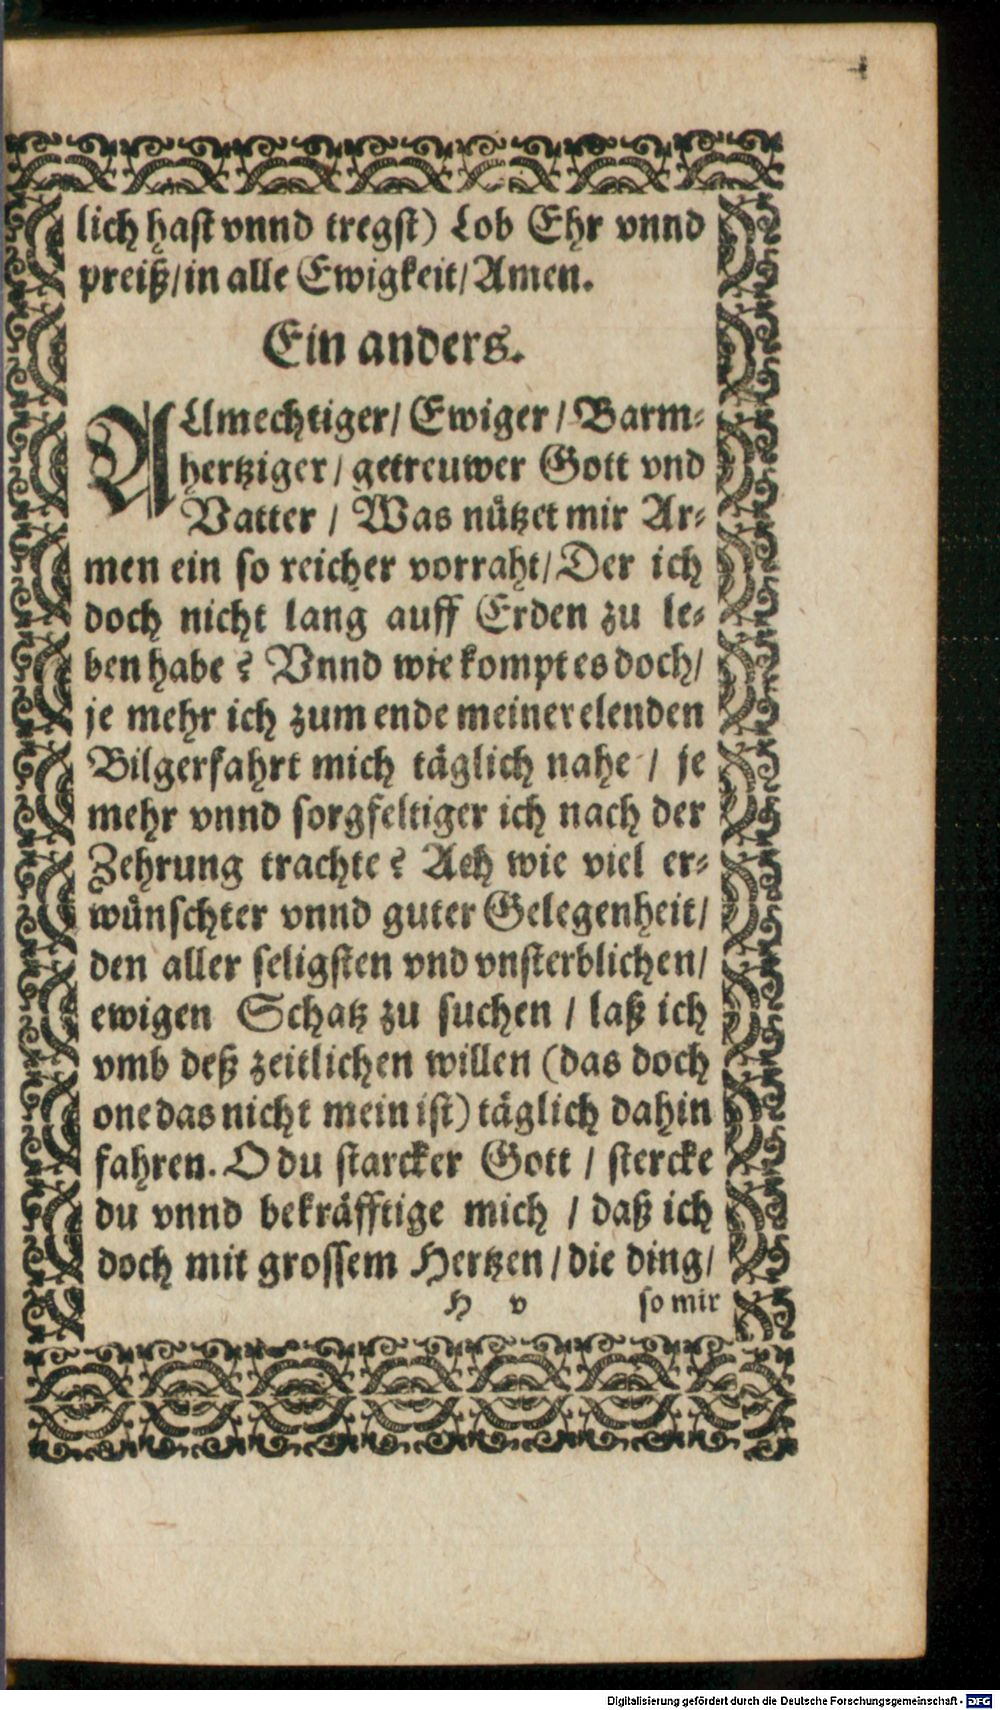 lich hast vnnd tregst) Lob Ehr vnnd
preiß/in alle Ewigkeit/Amen.
Ein anders.
ALlmechtiger/ Ewiger / Barm⸗
hertziger / getreuwer Gott vnd
Vatter / Was nützet mir Ar⸗
men ein so reicher vorraht/Der ich
doch nicht lang auff Erden zu le⸗
ben habe? Vnnd wie kompt es doch/
je mehr ich zum ende meiner elenden
Bilgerfahrt mich täglich nahe / je
mehr vnnd sorgfeltiger ich nach der
Zehrung trachte? Ach wie viel er⸗
wünschter vnnd guter Gelegenheit/
den aller seligsten vnd vnsterblichen/
ewigen Schatz zu suchen / laß ich
vmb deß zeitlichen willen (das doch
one das nicht mein ist) täglich dahin
fahren. O du starcker Gott / stercke
du vnnd bekräfftige mich / daß ich
doch mit grossem Hertzen / die ding/
H v so mir
Digitalisierung gefördert durch die Deutsche Forschungsgemeinschaft - DFG